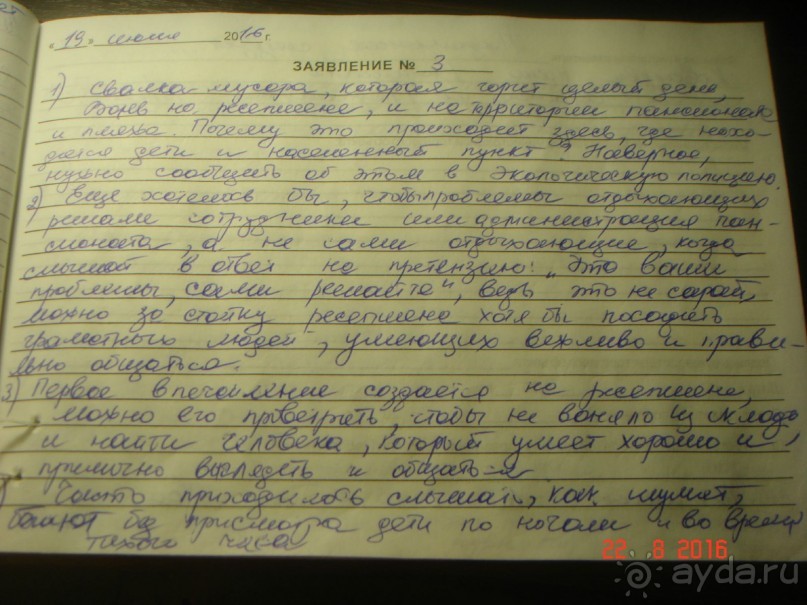 «19» июля 2016 г.
ЗАЯВЛЕНИЕ № 3
1) Свалка мусора, которая горит целый день,
Вонь на ресепшене, и на территории пансионата
и пляжа. Почему это происходит здесь, где нахо-
дятся дети и населенный пункт? Наверное,
нужно сообщить об этом в Экологическую полицию.
2) Еще хотелось бы, чтобы проблемы отдыхающих
решали сотрудники или администрация пан-
сионата, а не сами отдыхающие, когда
слышат в ответ на претензию: „Это ваши
проблемы, сами решайте", ведь это не сарай,
можно за стойку ресепшена хотя бы посадить
грамотных людей, умеющих вежливо и прави-
льно общаться.
3) Первое впечатление создается на ресепшене,
можно его проветрить, чтобы не воняло из
и найти человека, который умеет хорошо и
прилично выглядеть и общаться
) Часто приходилось слышать, как шумят,
бегают без присмотра дети по ночам и во время
тихого часа
22 8 2016
ayda.ru